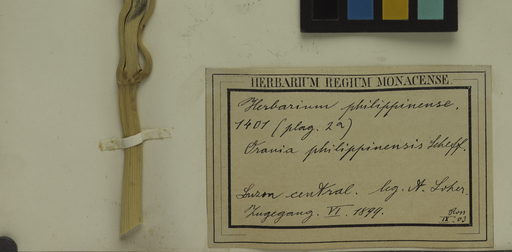 HERBARIUM REGIUM MONACENSE.
Herbarium philippinense.
1401 (plag. 2a)
Orania philippinensis Scheff.
Luzon central. leg. A. Loher.
Zugegang. VI. 1899.
IX. 03